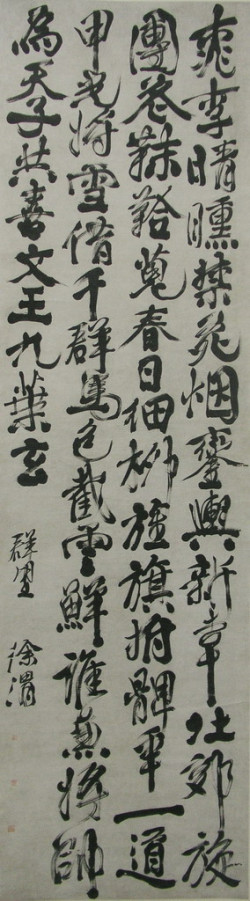 桃李晴曛禁苑烟鑾輿新幸北郊旋
團花靺鞈蒐春日細柳旌旗拊髀年一道
甲光將雪借千群馬色截雲鮮誰兼將帥
為天子共喜文王九葉玄
徐渭